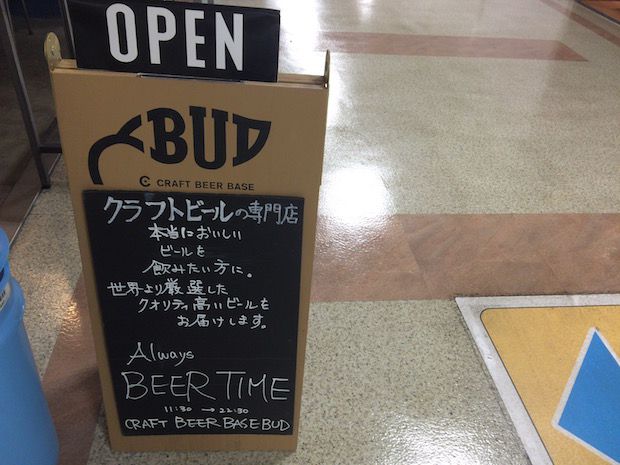 OPEN
BUD
CRAFT BEER BASE
クラフトビールの専門店
本当においしい
ビールを
飲みたい方に。
世界より厳選した
クオリティ高いビールを
お届けします。
Always
BEER TIME
11:30 → 22:30
CRAFT BEER BASE BUD